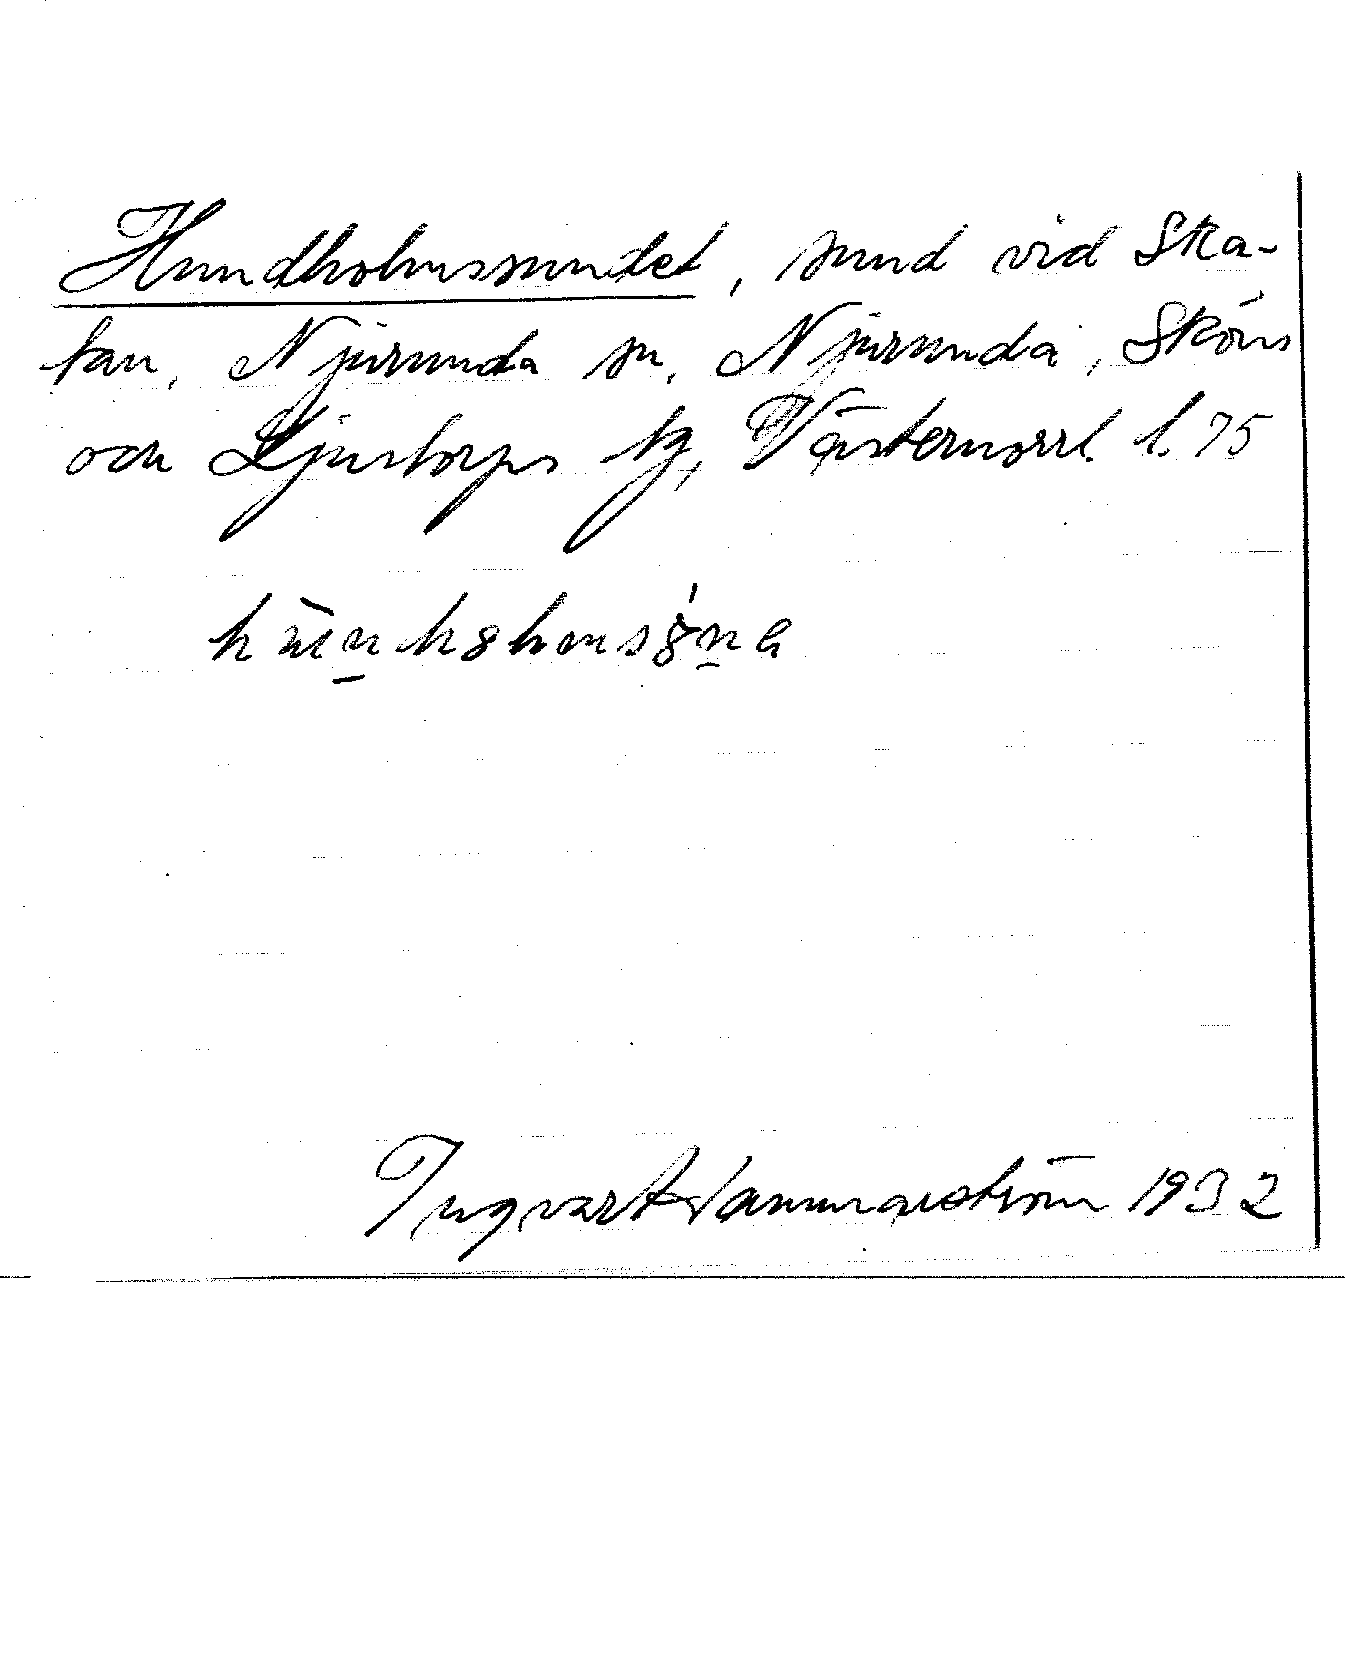 Hundholmssundet, sund vid Ska-
tan, Njurunda sn, Njurunda, Sköns
och Ljustorps tg, Västernorrl. l. 75
Ingvart Hammarström 1932